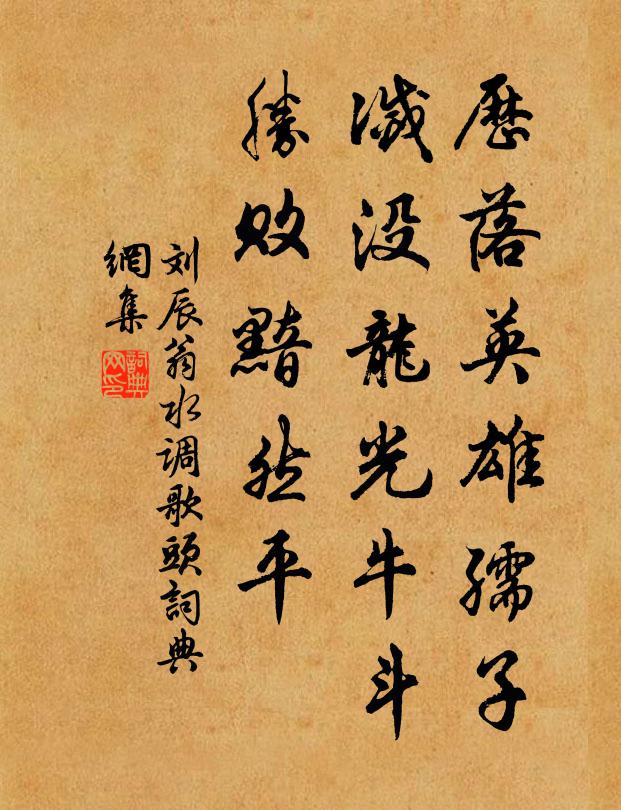 歷落英雄孺子
滅没龍光牛斗
勝敗黯然平
刘辰翁水调歌頭詞典
網集
詞典
网印